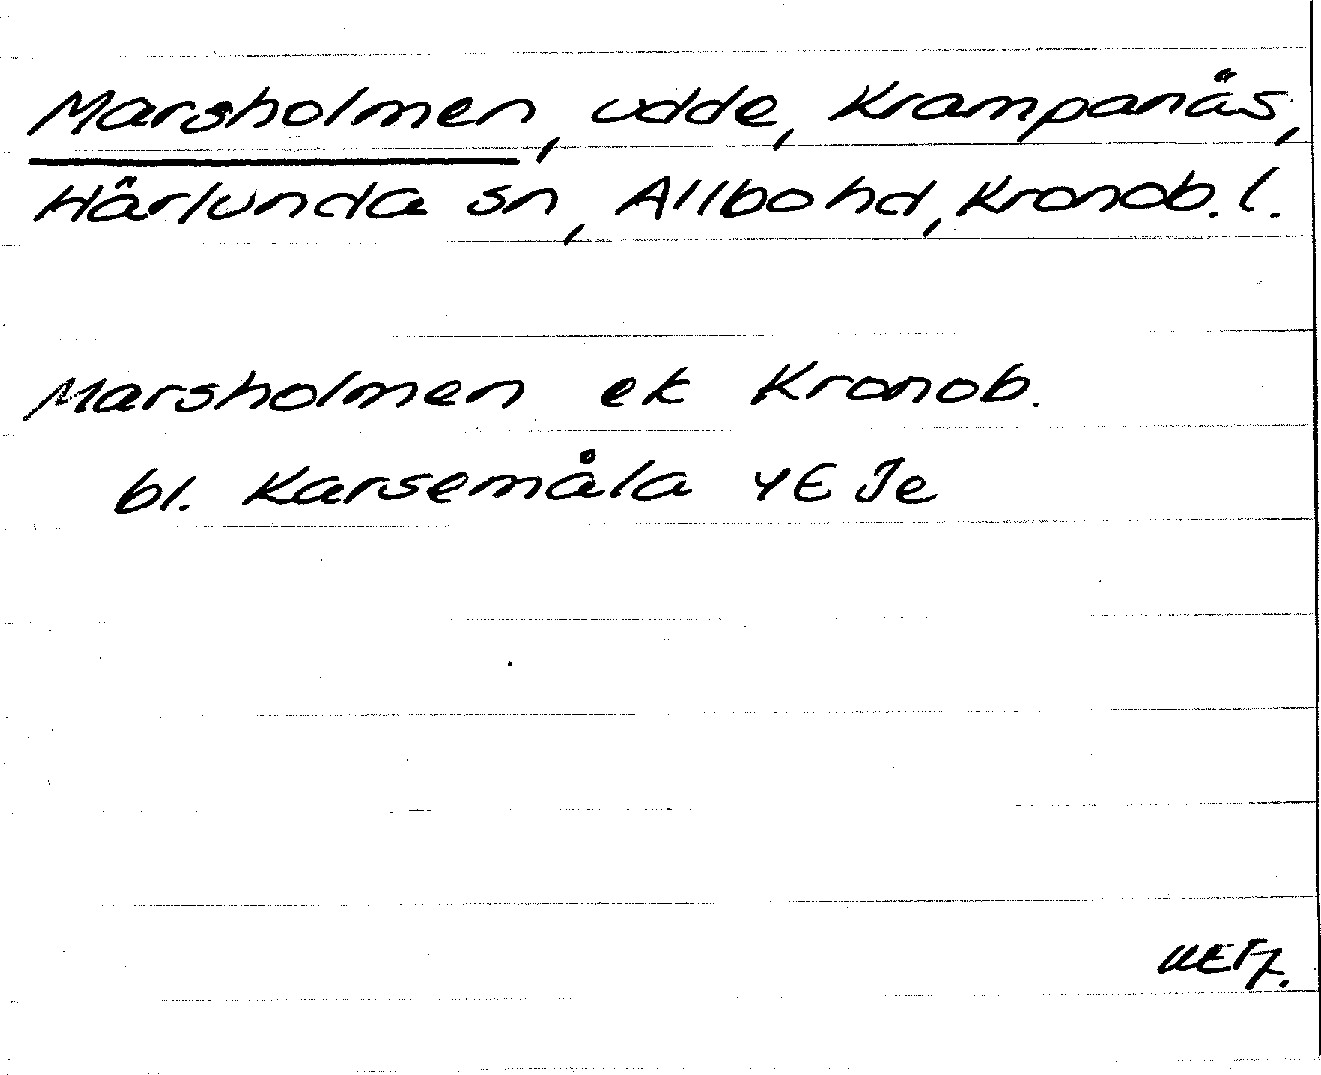 Marsholmen, udde, Krampanäs,
Härlunda sn, Allbo hd, Kronob. l.
Marsholmen ek Kronob.
bl. Karsemåla 4E Je